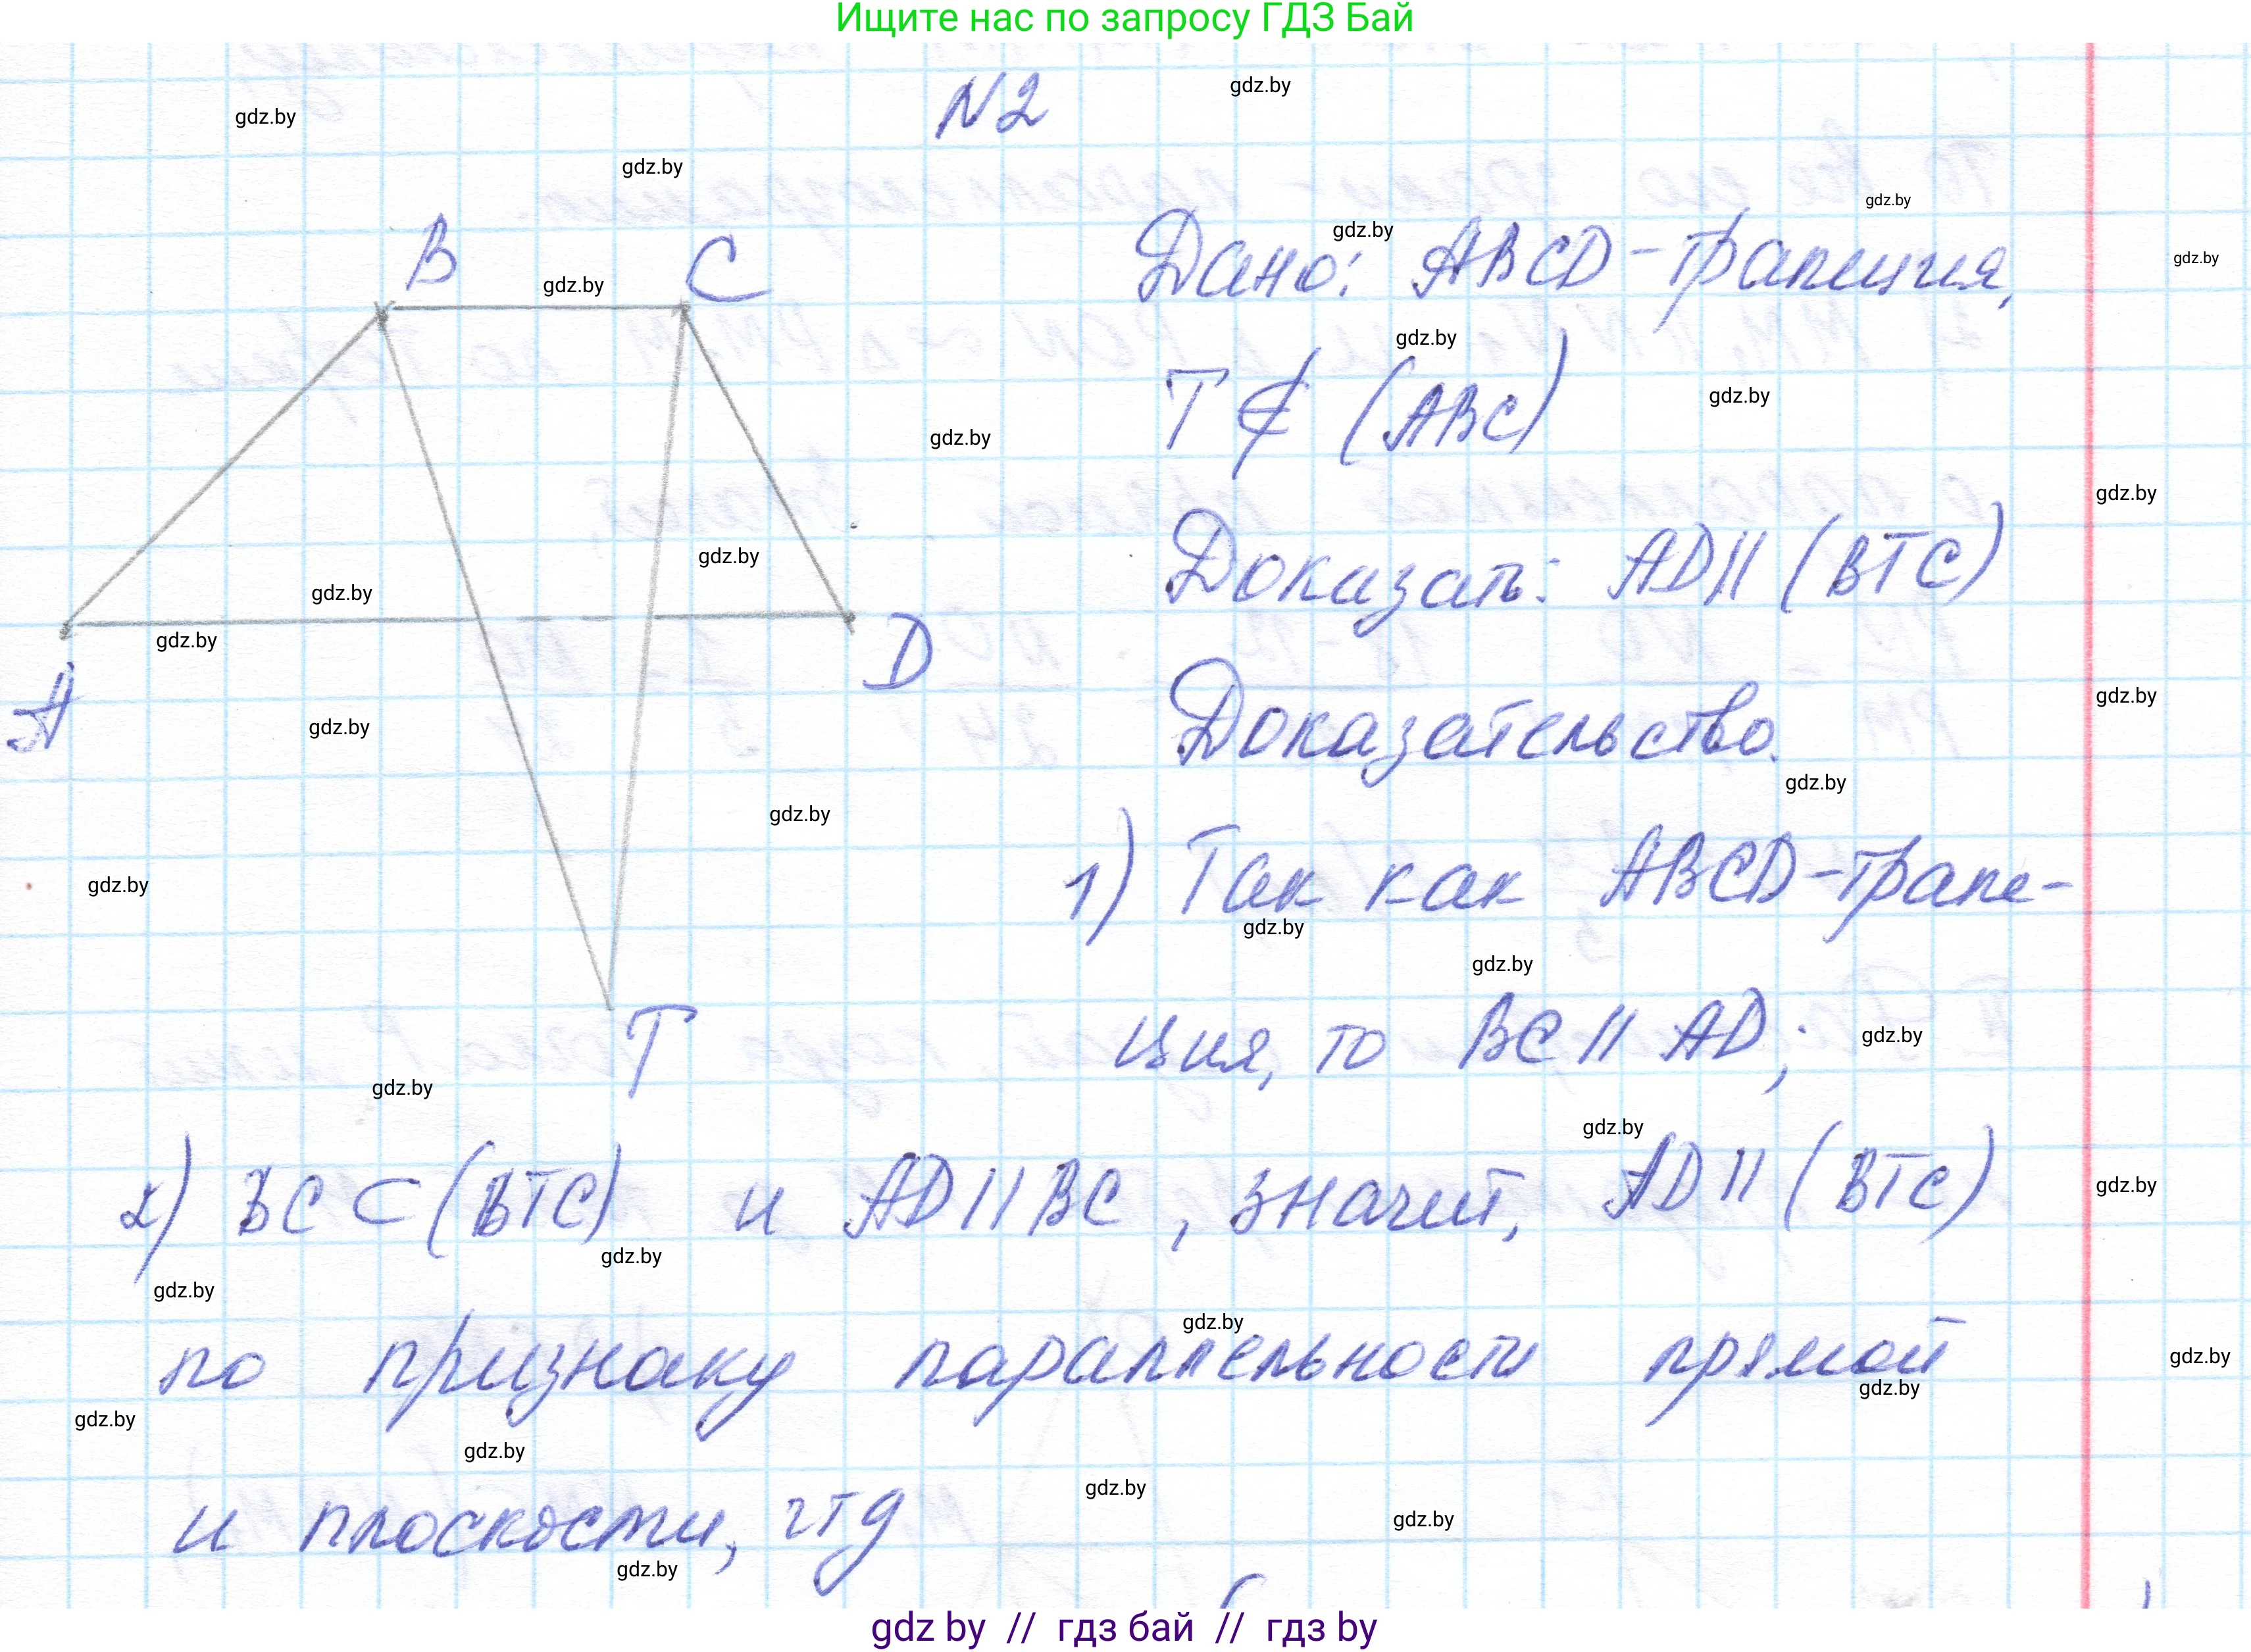 Ищите нас по запросу ГДЗ Бай
N2
gdz.by
gdz.by
gdz.by
gdz.by
B
C
gdz.by
Дано: ABCD - трапеция,
gdz.by
gdz.by
T ∉ (ABC)
gdz.by
gdz.by
gdz.by
gdz.by
Доказать: AD || (BTC)
gdz.by
gdz.by
gdz.by
A
D
gdz.by
Доказательство.
gdz.by
gdz.by
gdz.by
gdz.by
1) Так как ABCD - трапе-
gdz.by
gdz.by
gdz.by
ция, то BC || AD;
gdz.by
T
gdz.by
gdz.by
2) BC ⊂ (BTC) и AD || BC, значит, AD || (BTC)
gdz.by
gdz.by
gdz.by
gdz.by
по признаку параллельности прямой
gdz.by
gdz.by
gdz.by
gdz.by
gdz.by
и плоскости, чтд
gdz.by
gdz.by
gdz by // гдз бай // гдз by